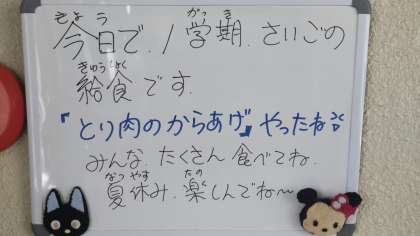 きょう がっ き
今日で、1学期、さいごの
きゅうしょく
給食です。
『とり肉のからあげ』やったね
みんな、たくさん食べてね。
なつ やす たの
夏休み、楽しんでね〜